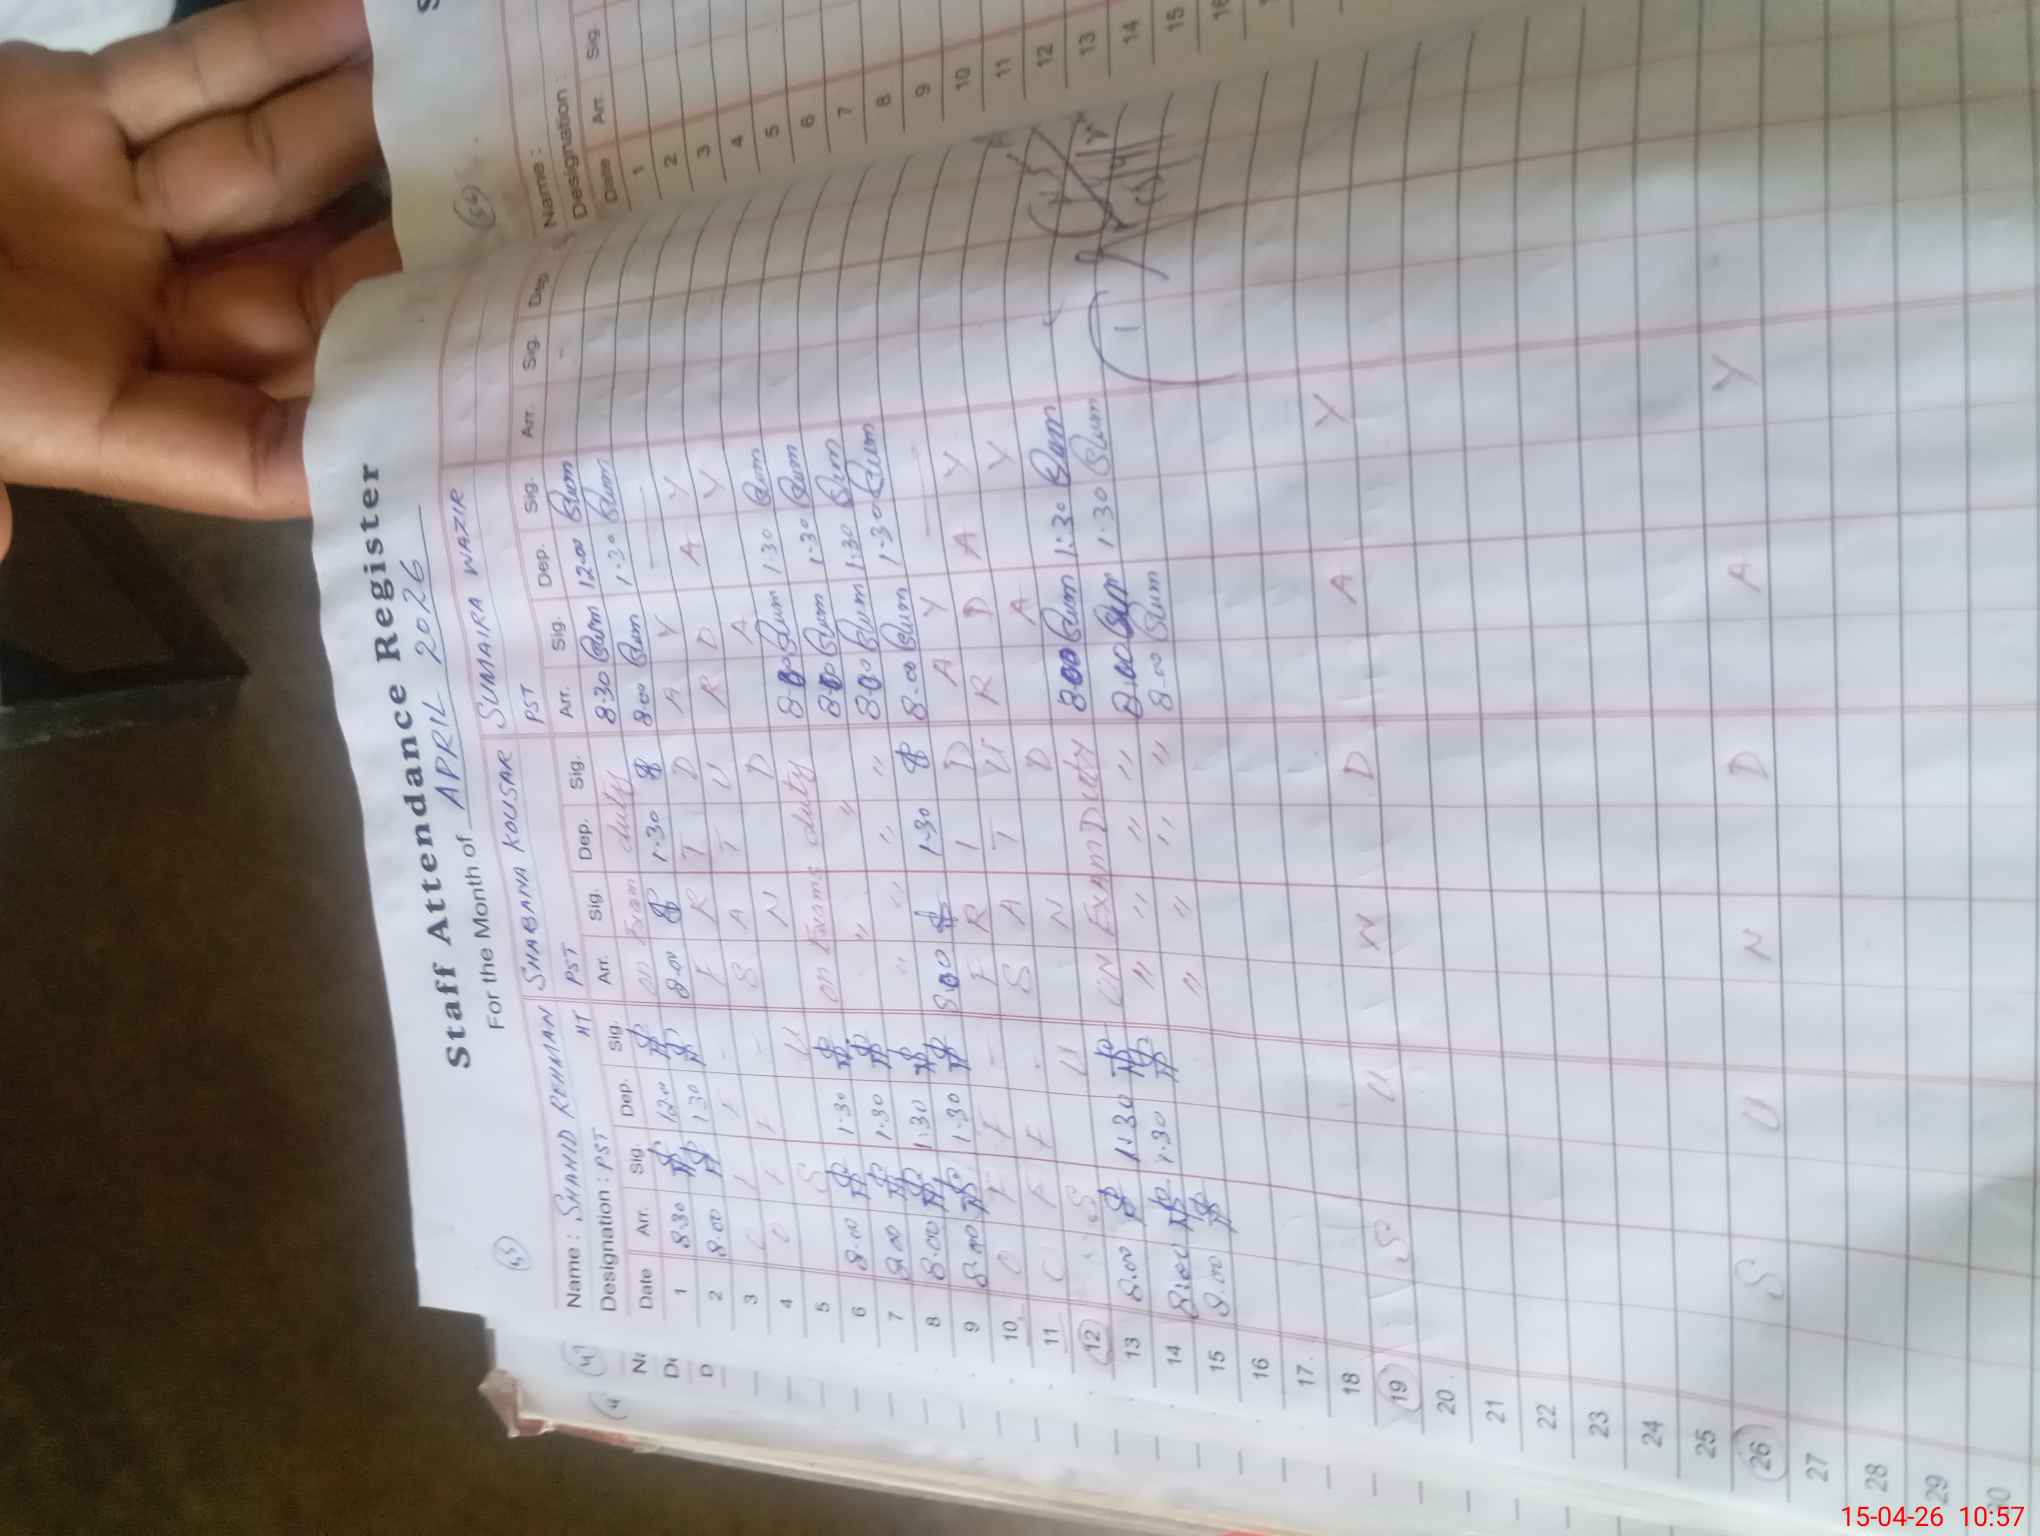 Staff Attendance Register
For the Month of APRIL 2026
Name : SHAHID REHMAN SHABANA KOUSAR SUMAIRA WAZIR
Designation : PST HT PST PST
Date Arr. Sig. Dep. Sig. Arr. Sig. Dep. Sig. Arr. Sig. Dep. Sig. Arr. Sig.
1 8.30 12.00 on Exam duty 8:30 12.00
2 8.00 1.30 8.00 1.30 8.00 1.30
3 F R I D A Y
4 S A T U R D A Y
5 S U N D A Y
6 8.00 1.30 on Exams duty 8.00 1.30
7 8.00 1.30 " " 8.00 1.30
8 8.00 1:30 " " " " 8.00 1:30
9 8.00 1.30 8.00 1.30 8.00 1.30
10 F R I D A Y
11 S A T U R D A Y
12 S U N D A Y
13 8.00 1:30 ON EXAM Duty 8.00 1:30
14 8.00 1.30 " " " " 8.00 1.30
15 8.00 " " " " 8.00
16
17
18
19 S U N D A Y
20
21
22
23
24
25
26 S U N D A Y
27
28
29
30
Name :
Designation :
Date Arr. Sig.
1
2
3
4
5
6
7
8
9
10
11
12
13
14
15
16
15-04-26 10:57